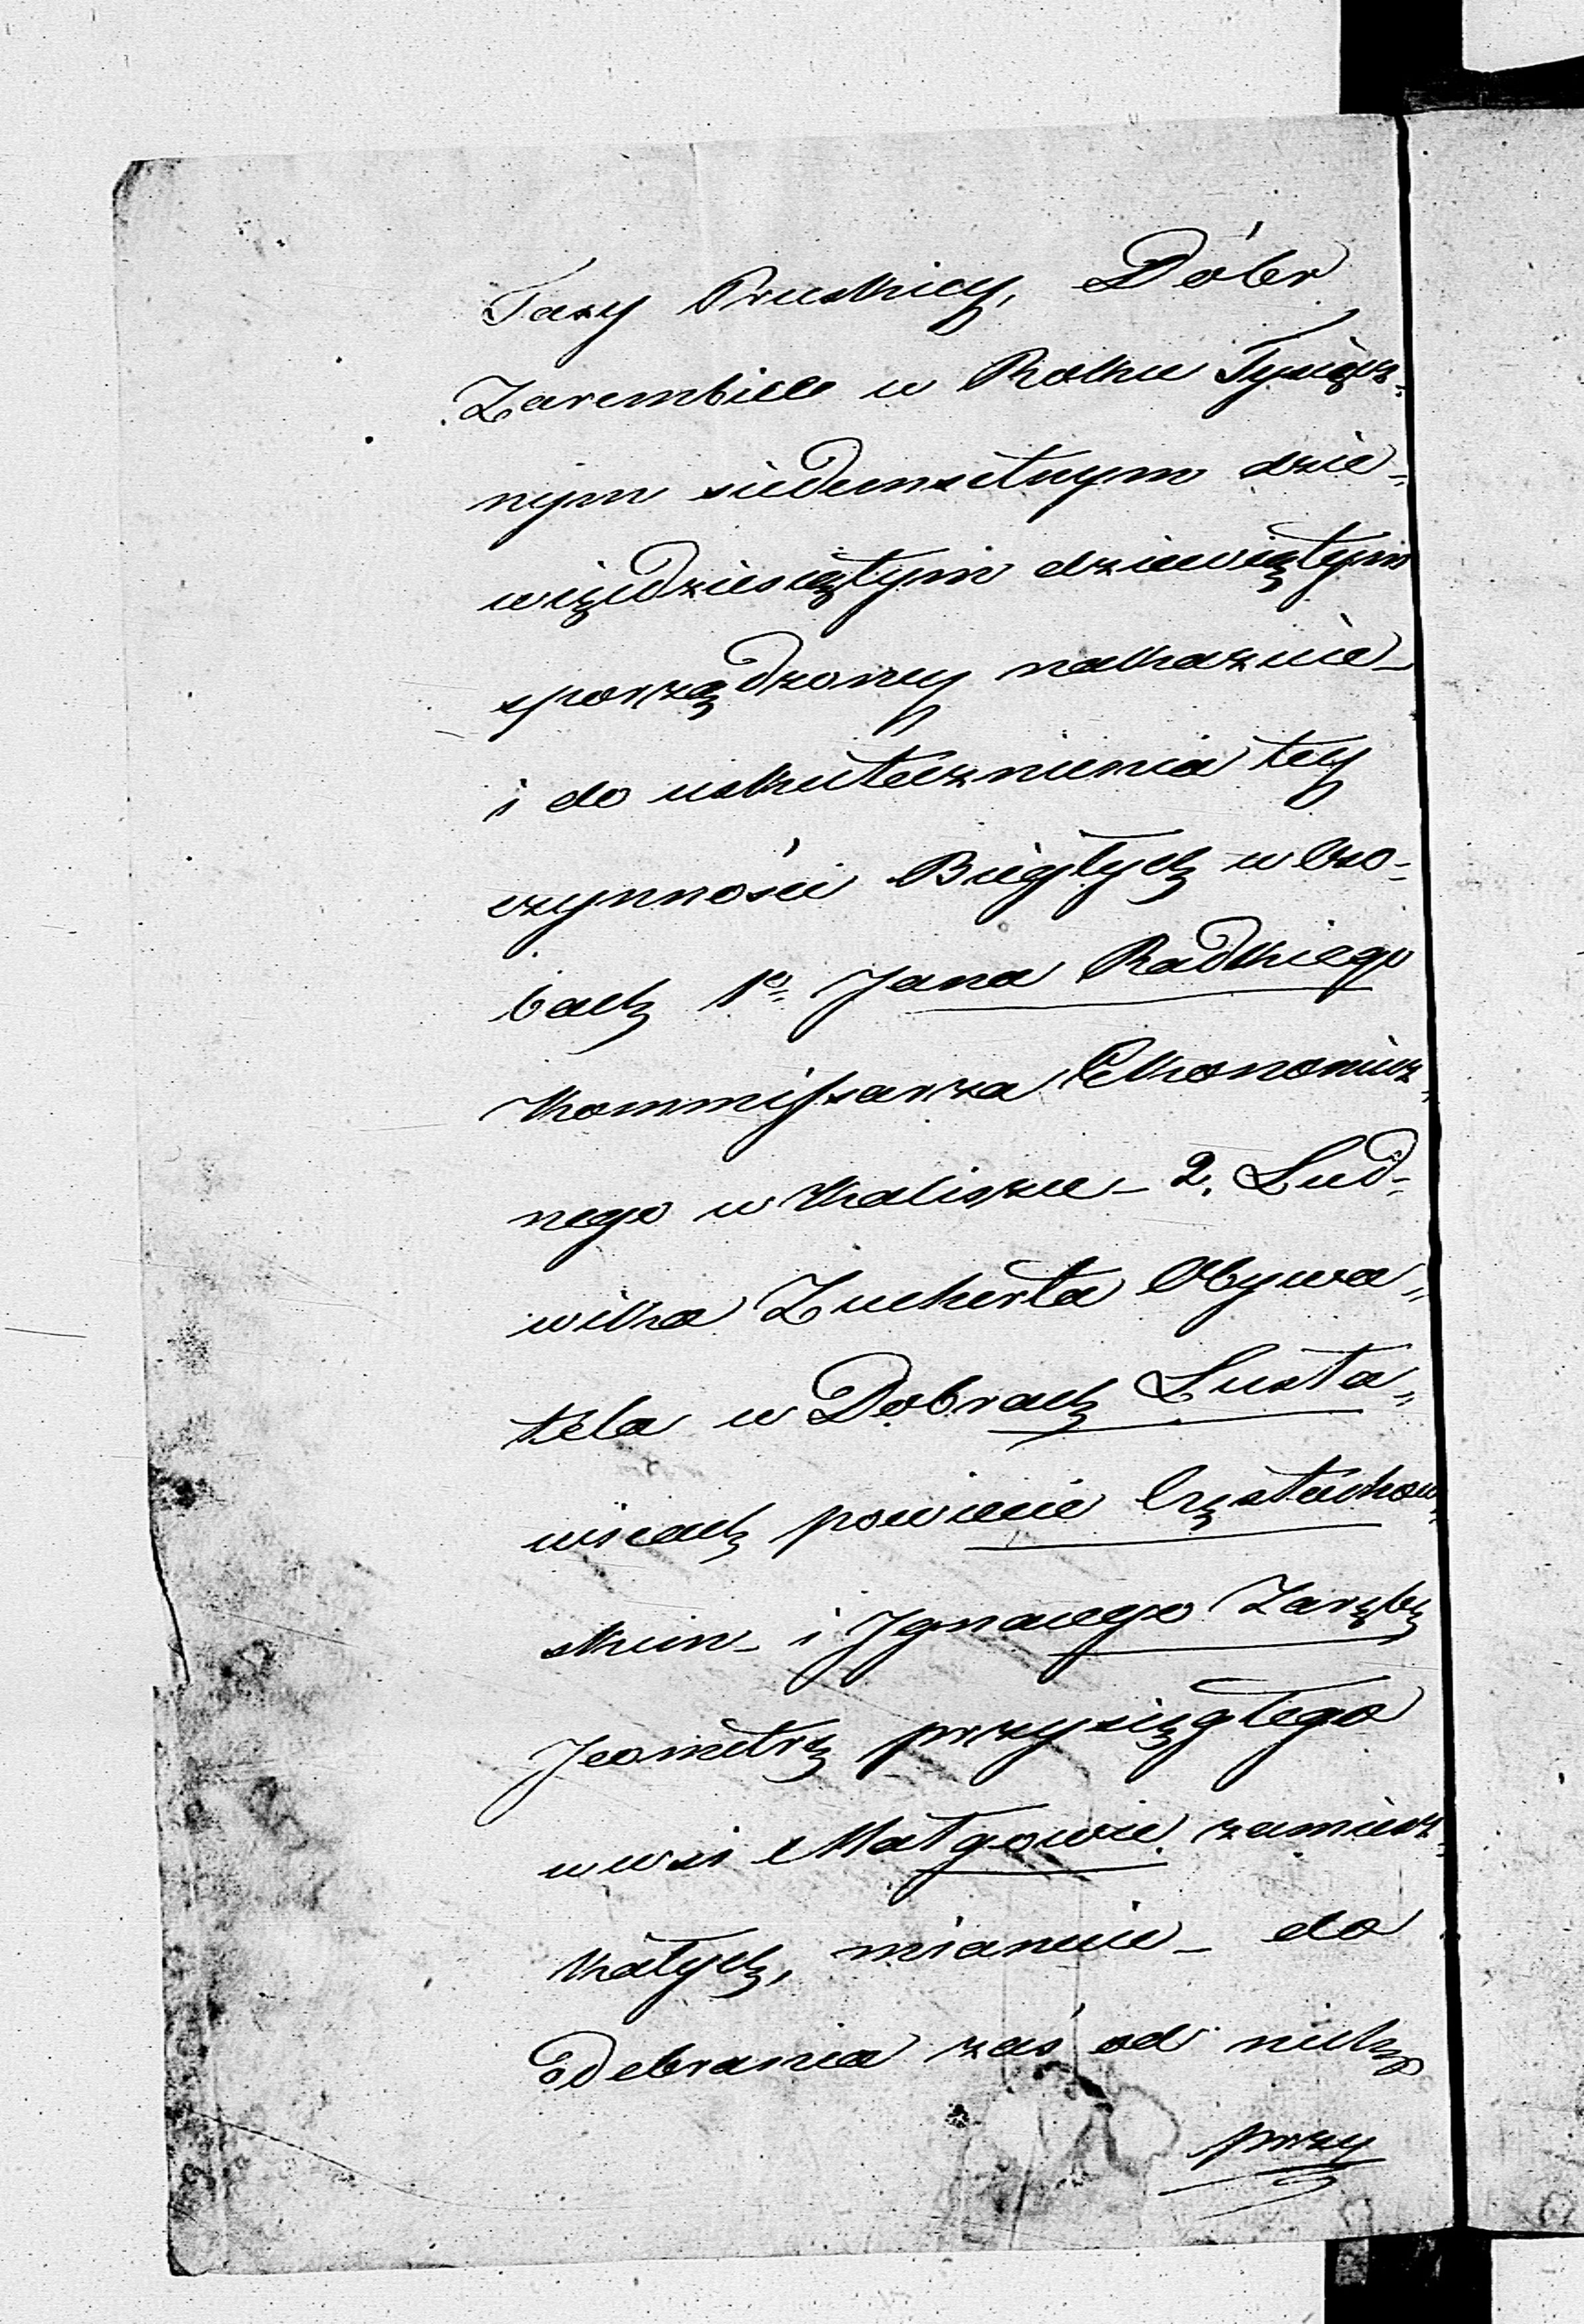 Taxy Pruskiey, Dóbr
Zarembice w Roku Tysiącz-
nym siedmsetnym dzie-
więdziesiątym dziewiątym
sporządzoney nakazuie
i do uskutecznienia tey
czynności Biegłych w Oso-
bach 1o Jana Radkiego
Kommissarza Ekonomicz-
nego w Kaliszu - 2. Lud-
wika Zucherta Obywa-
tela w Dobrach Susta-
wicach powiecie Częstochow-
skim i Ignacego Zarębę
Jeometrę przysięgłego
w wsi Małgowie zamiesz-
kałych, mianuie - do
Odebrania zaś od nich
przy